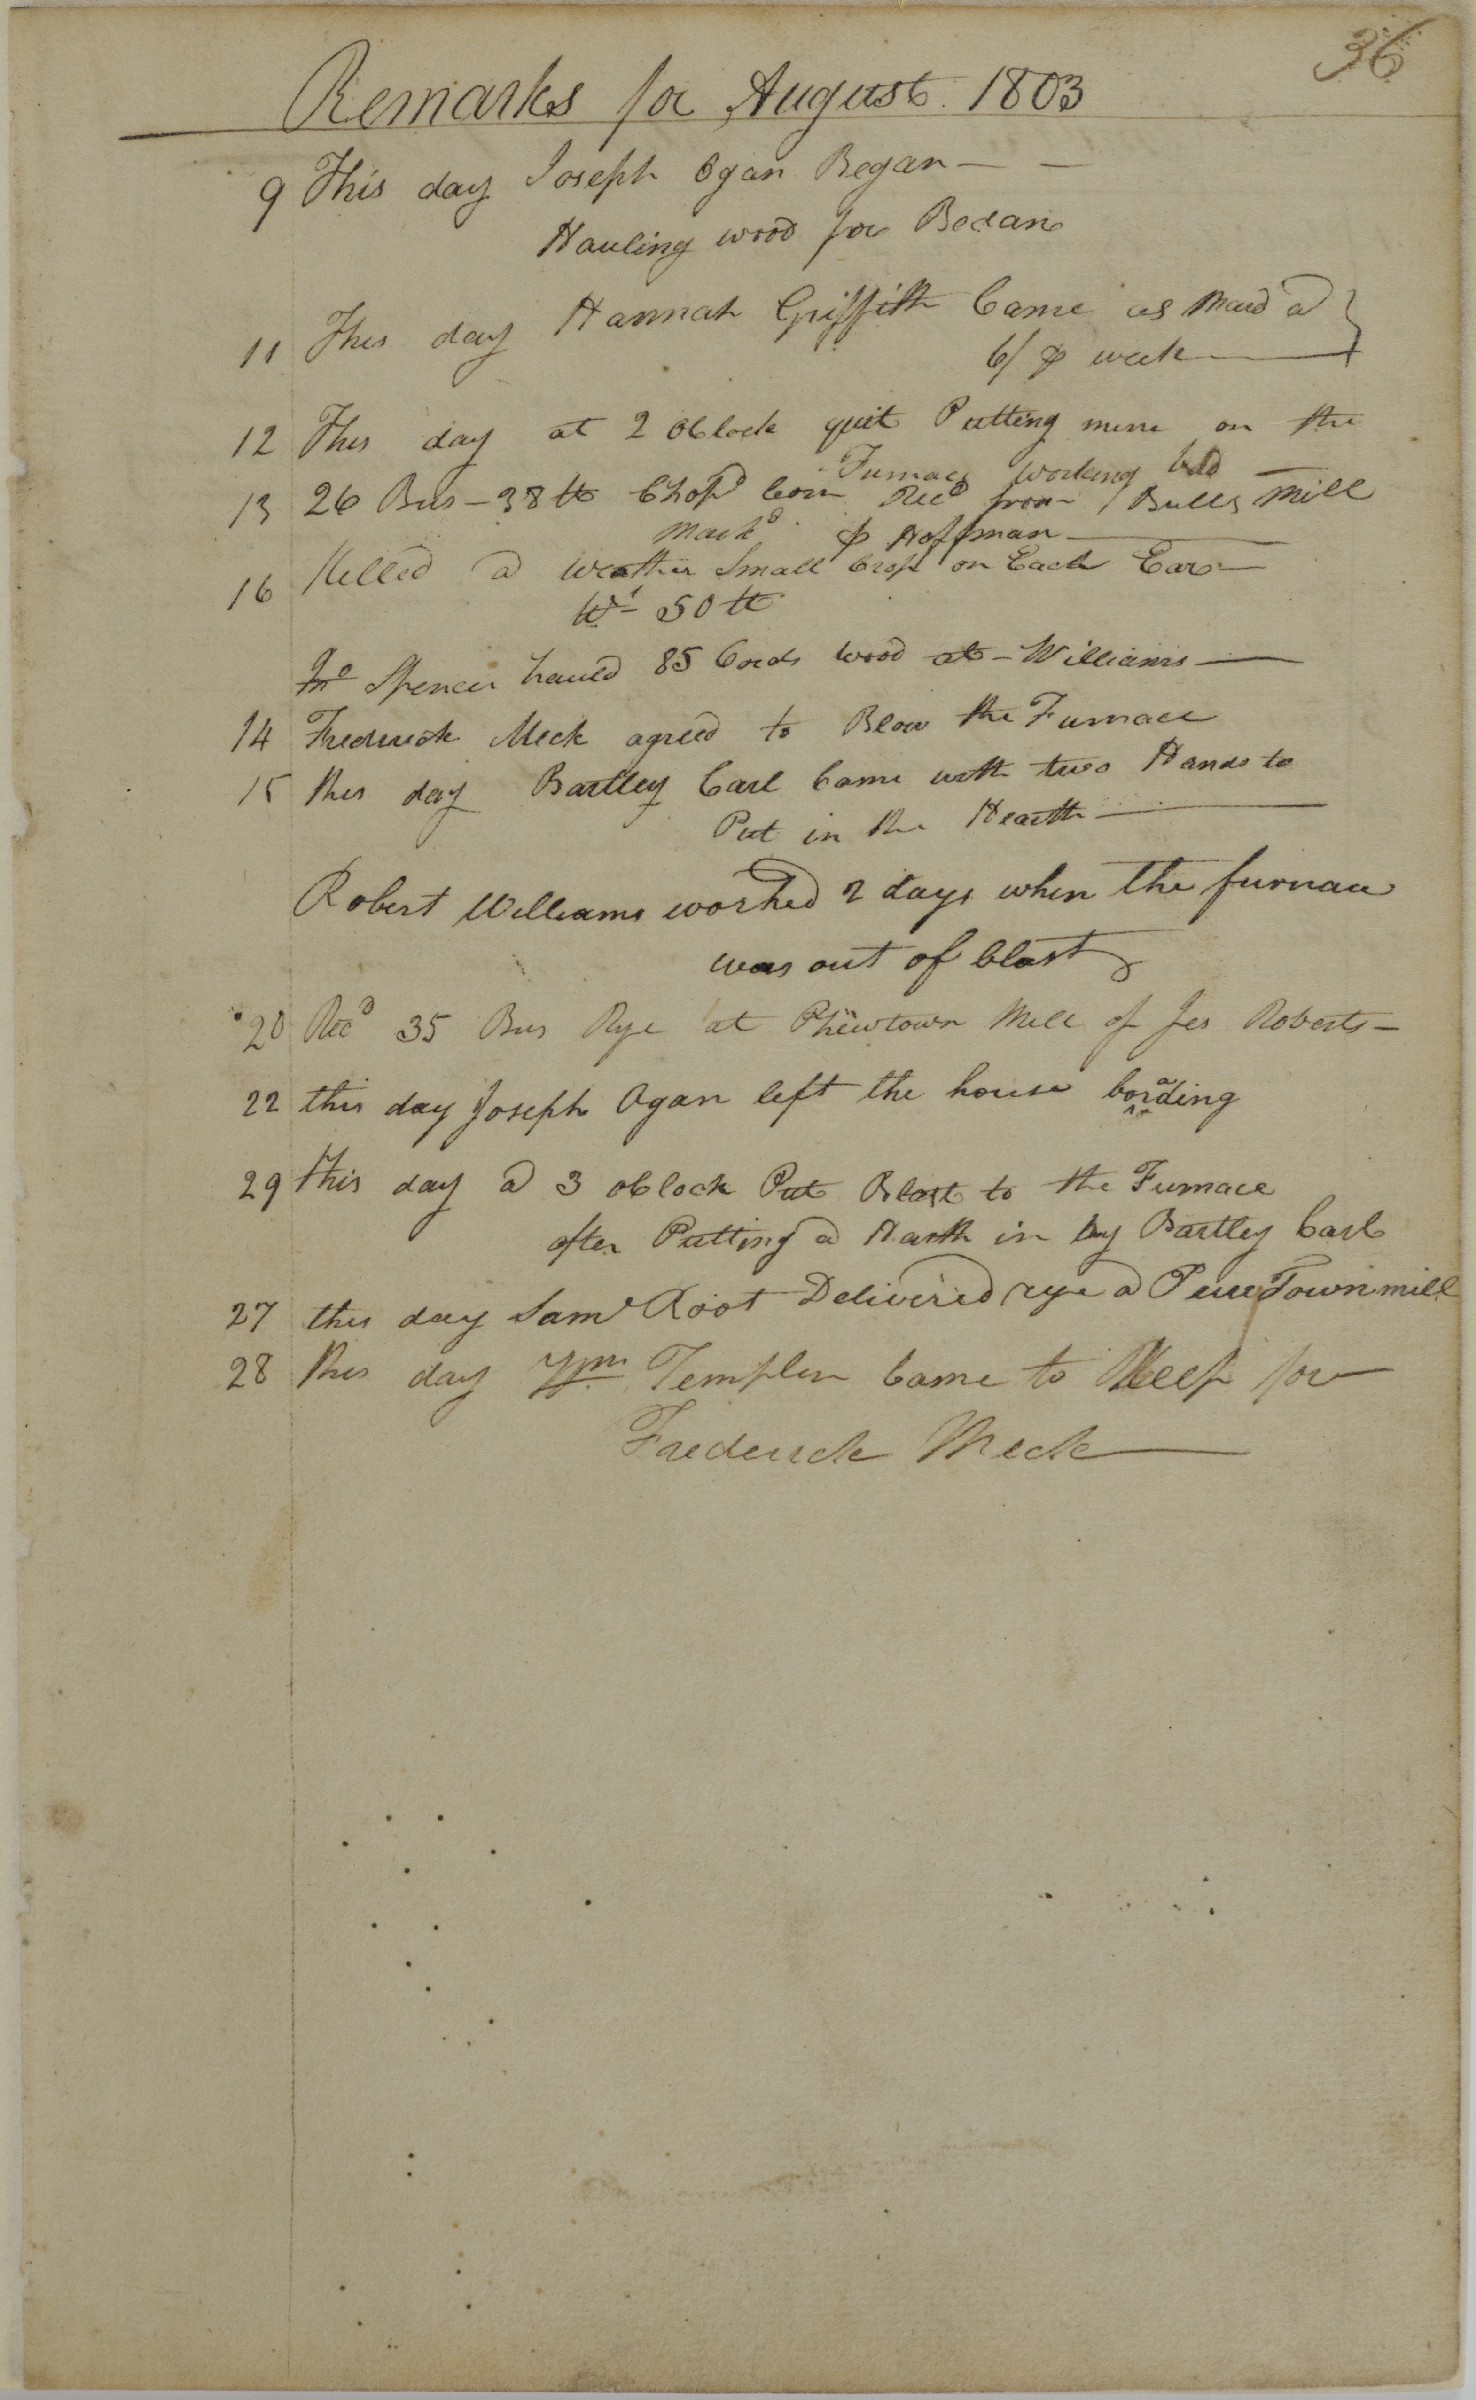 36
Remarks for August 1803
9 This day Joseph Ogan Began —
Hauling wood for Bedan
11 This day Hannah Griffith Came as Maid @
6/ ⅌ week
12 This day at 2 oClock quit Putting mine on the
Furnace working bad
13 26 Bus — 38 lb Chopd Corn Recd from Bulls Mill
⅌ Hoffman
16 Killed a weather Small Crop on Each Ear
Wt 50 lb
Jno Spencer hauld 85 Cords wood at Williams
14 Frederick Meck agreed to Blow the Furnace
15 this day Bartley Carl Came with two Hands to
Put in the Hearth
Robert Williams worked 2 days when the furnace
was out of blast
20 Recd 35 Bus Rye at Phewtown Mill of Jes Roberts —
22 this day Joseph Ogan left the house boarding
29 this day @ 3 oClock Put Blast to the Furnace
after Putting a Harth in by Bartley Carl
27 this day Saml Root Delivered rye @ PewTown mill
28 this day Wm Templin Came to Keep for
Frederick Meck